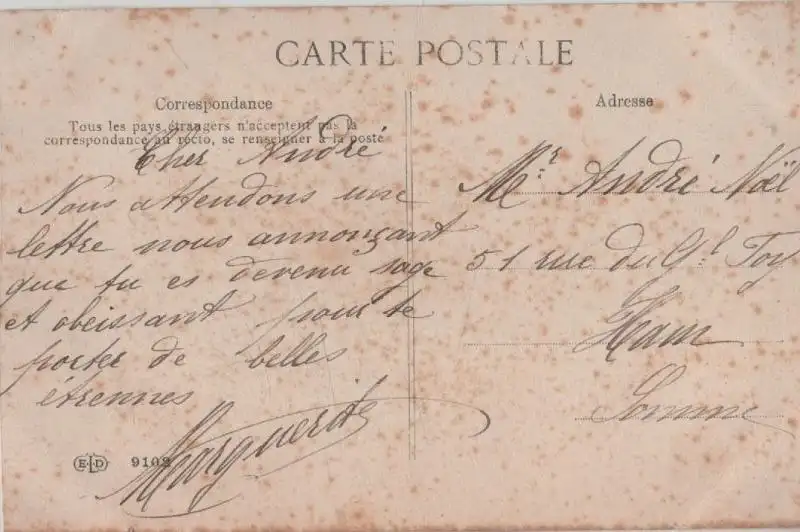 CARTE POSTALE
Correspondance
Tous les pays étrangers n'acceptent pas la
correspondance au recto, se renseigner à la poste
Cher André
Nous attendons une
lettre nous annonçant
que tu es devenu sage
et obeissant pour te
porter de belles
étrennes
Marguerite
ELD 9102
Adresse
Mr. André Noël
51 rue du Gl. Foy
Ham
Somme